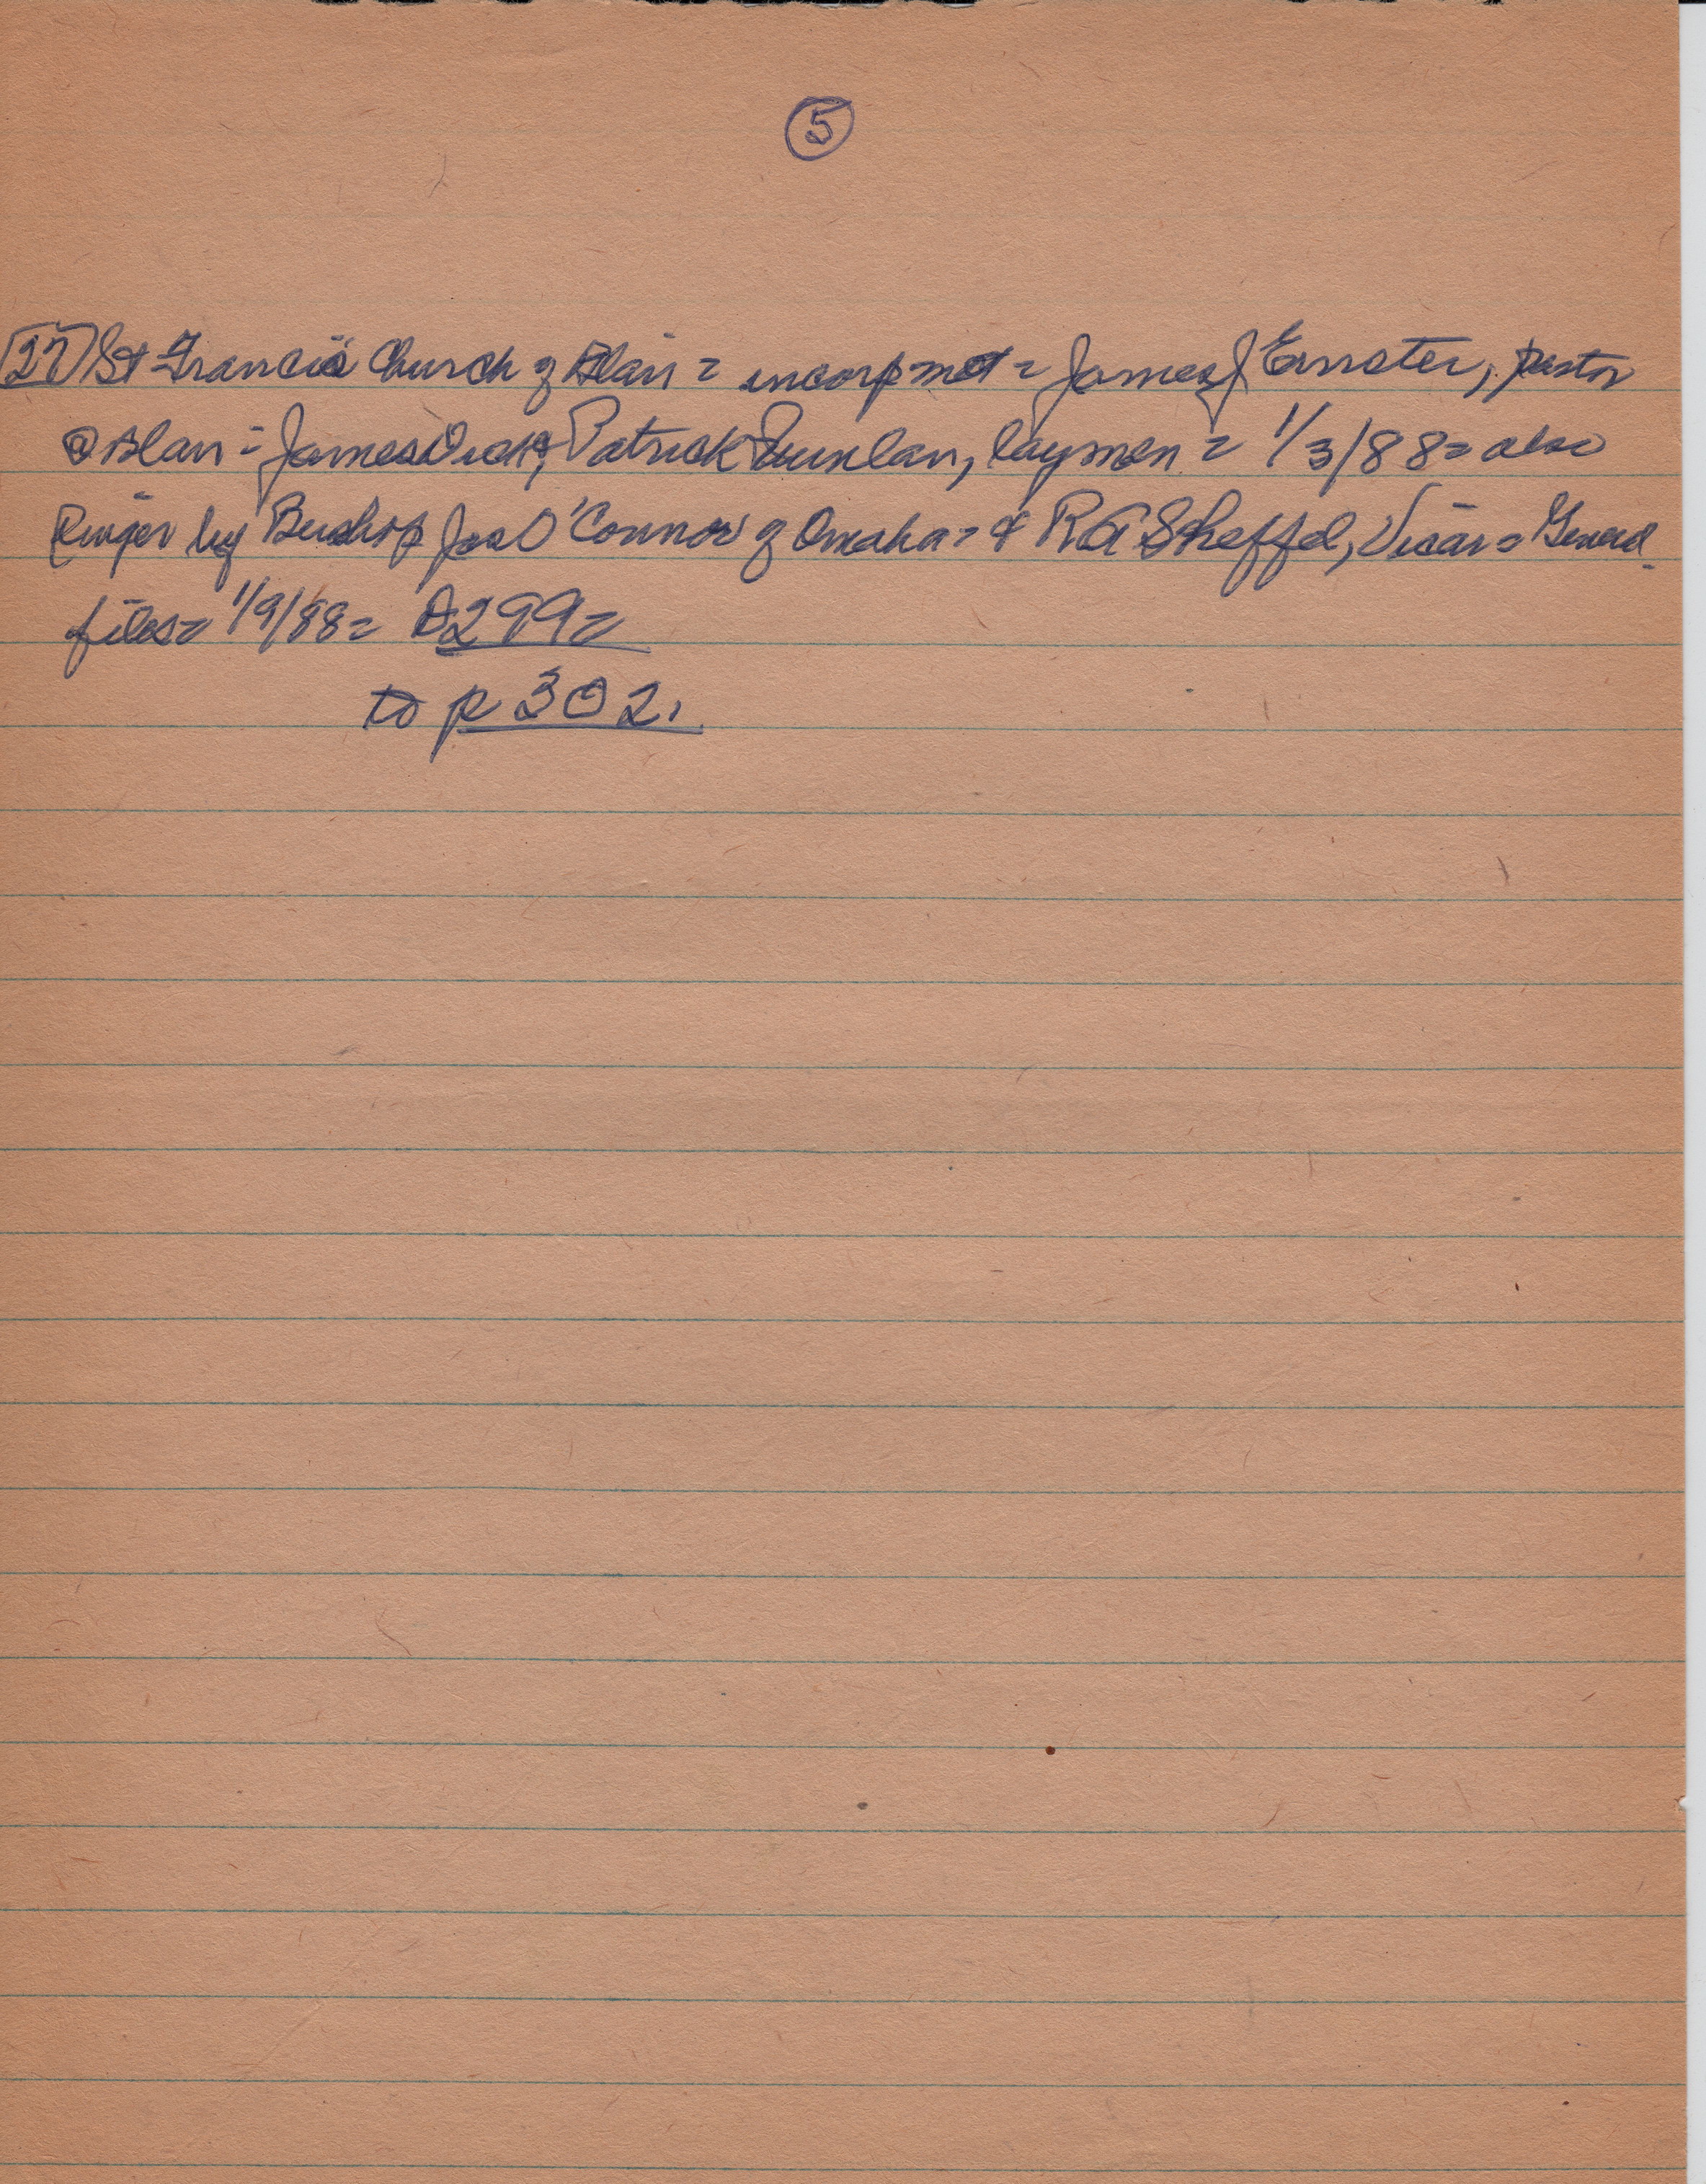 5
27 St Francis Church of Blair = incorp = James J Ernster, pastor
@ Blair = James Dick, Patrick Quinlan, laymen = 1/3/88 = also
by Bishop Jas O'Connor of Omaha = & R A Sheffel, Vicar = General
files = 1/9/88 = p299 =
to p 302.